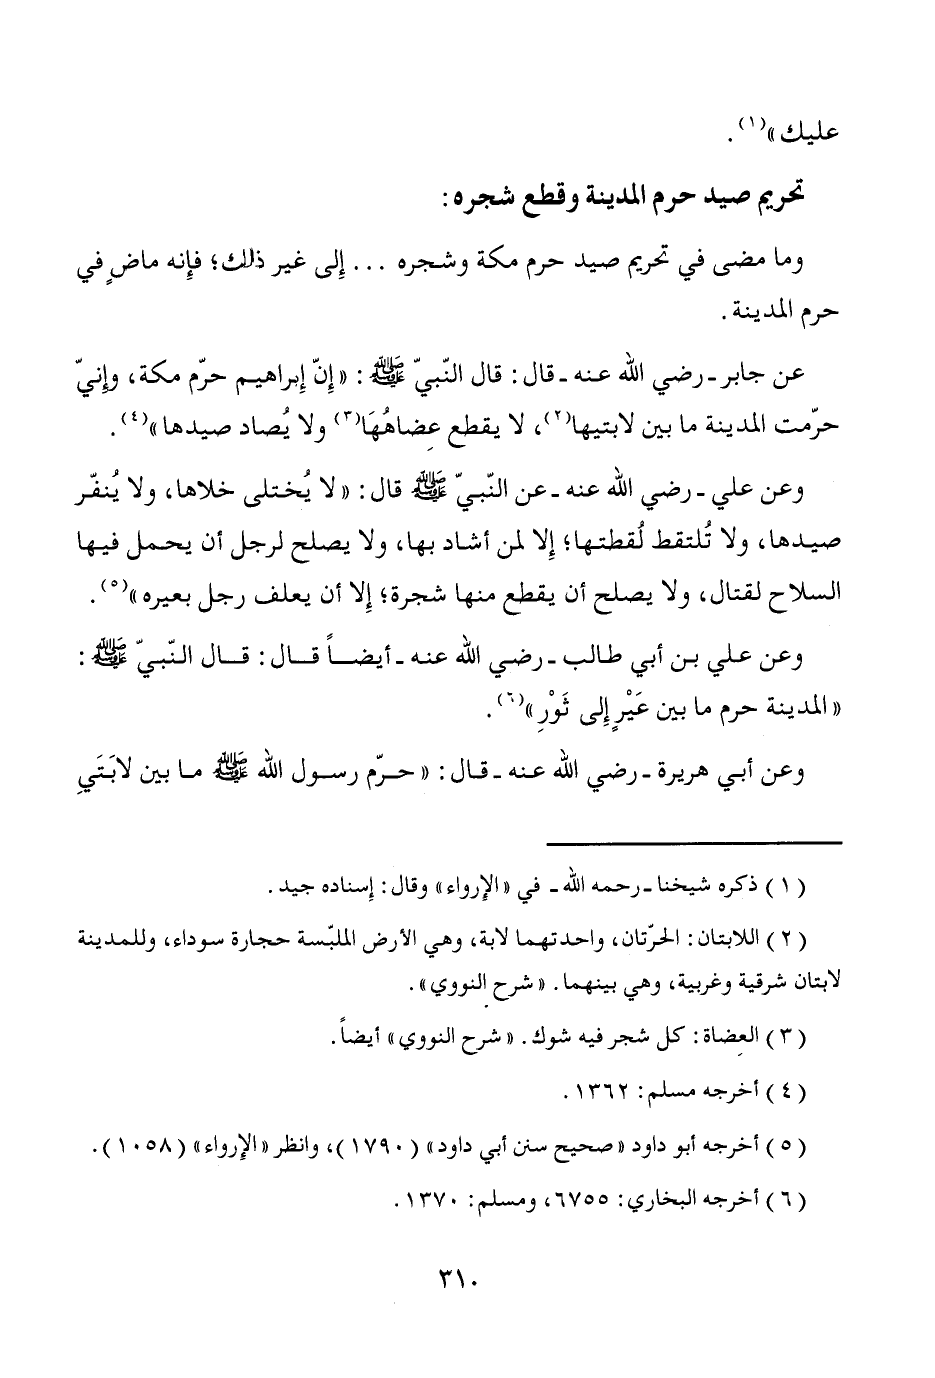 عليك»(١).
تحريم صيد حرم المدينة وقطع شجره:
وما مضى في تحريم صيد حرم مكة وشجره ... إلى غير ذلك؛ فإنه ماضٍ في
حرم المدينة.
عن جابر ـ رضي الله عنه ـ قال: قال النّبيّ ﷺ: «إنّ إبراهيم حرّم مكة، وإنيّ
حرّمت المدينة ما بين لابتيها(٢)، لا يقطع عِضاهُهَا(٣) ولا يُصاد صيدها»(٤).
وعن علي ـ رضي الله عنه ـ عن النّبيّ ﷺ قال: «لا يُختلى خلاها، ولا يُنفّر
صيدها، ولا تُلتقط لُقطتها؛ إلا لمن أشاد بها، ولا يصلح لرجل أن يحمل فيها
السلاح لقتال، ولا يصلح أن يقطع منها شجرة؛ إلا أن يعلف رجل بعيره»(٥).
وعن علي بن أبي طالب ـ رضي الله عنه ـ أيضاً قال: قال النّبيّ ﷺ:
«المدينة حرم ما بين عَيْرٍ إلى ثَوْرٍ»(٦).
وعن أبي هريرة ـ رضي الله عنه ـ قال: «حرّم رسول الله ﷺ ما بين لابَتَيِ
(١) ذكره شيخنا ـ رحمه الله ـ في «الإرواء» وقال: إسناده جيد.
(٢) اللابتان: الحرّتان، واحدتهما لابة، وهي الأرض الملبّسة حجارة سوداء، وللمدينة
لابتان شرقية وغربية، وهي بينهما. «شرح النووي».
(٣) العِضاة: كل شجر فيه شوك. «شرح النووي» أيضاً.
(٤) أخرجه مسلم: ١٣٦٢.
(٥) أخرجه أبو داود «صحيح سنن أبي داود» (١٧٩٠)، وانظر «الإرواء» (١٠٥٨).
(٦) أخرجه البخاري: ٦٧٥٥، ومسلم: ١٣٧٠.
٣١٠